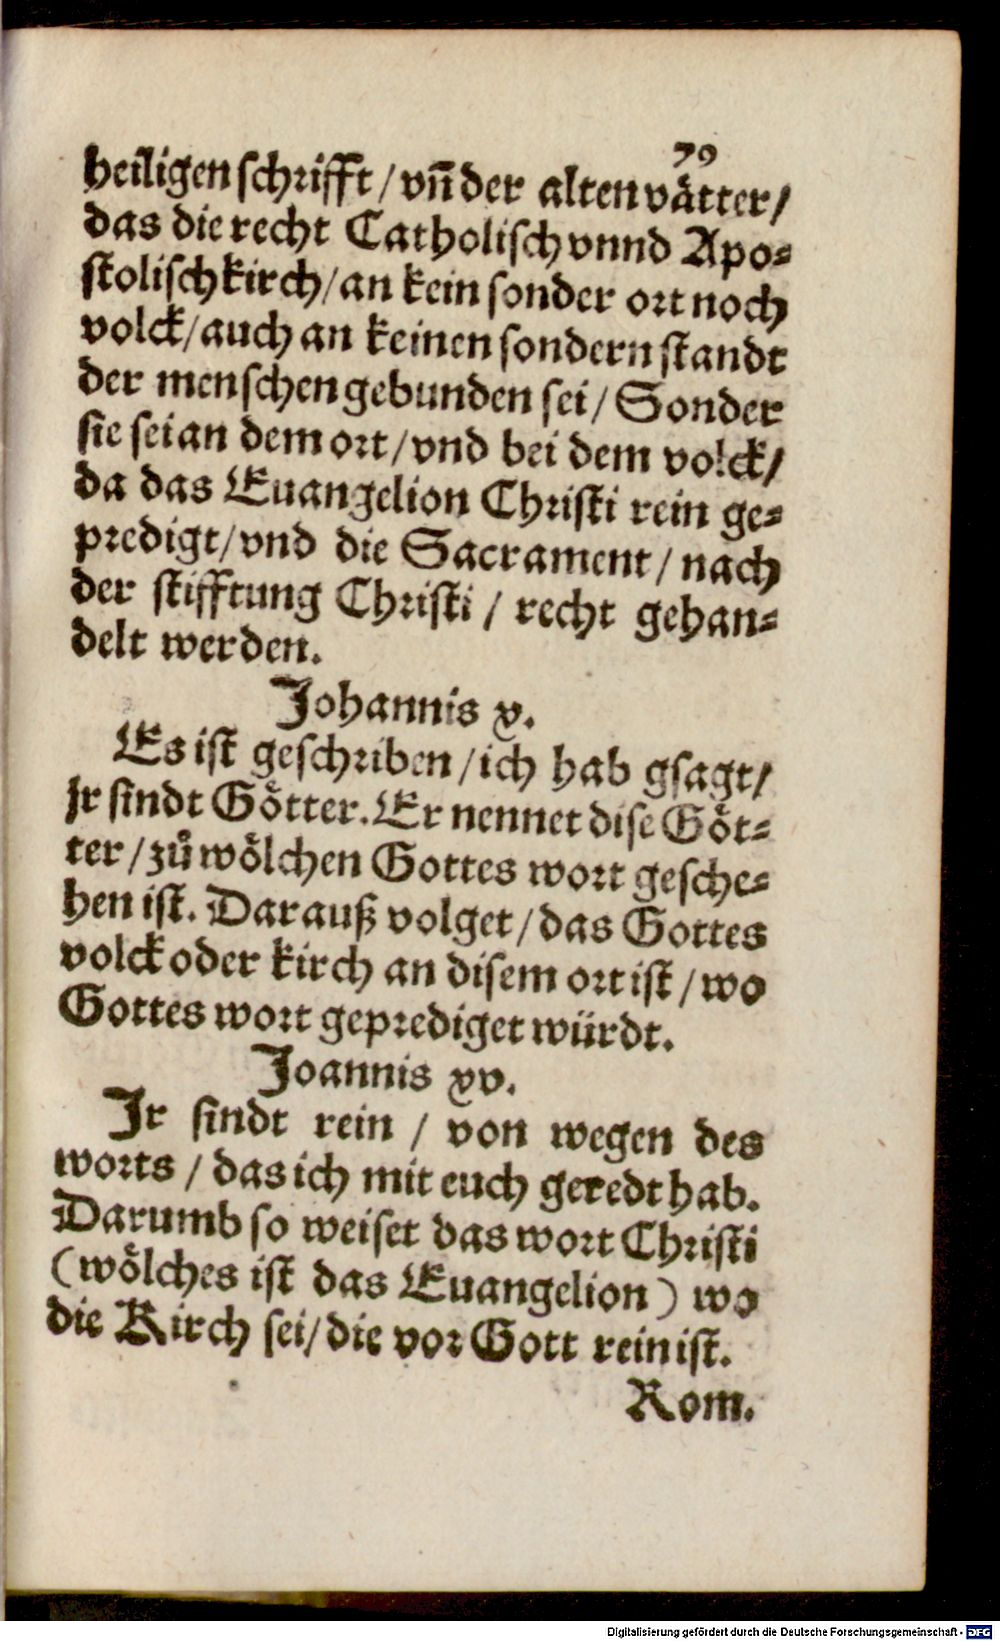 79
heiligen schrifft / vn̄ der alten vätter /
das die recht Catholisch vnnd Apo⸗
stolisch kirch / an kein sonder ort noch
volck / auch an keinen sondern standt
der menschen gebunden sei / Sonder
sie sei an dem ort / vnd bei dem volck /
da das Euangelion Christi rein ge⸗
predigt / vnd die Sacrament / nach
der stifftung Christi / recht gehan⸗
delt werden.
Johannis x.
Es ist geschriben / ich hab gsagt /
jr sindt Götter. Er nennet dise Göt⸗
ter / zů wölchen Gottes wort gesche⸗
hen ist. Darauß volget / das Gottes
volck oder kirch an disem ort ist / wo
Gottes wort geprediget würdt.
Joannis xv.
Jr sindt rein / von wegen des
worts / das ich mit euch geredt hab.
Darumb so weiset das wort Christi
(wölches ist das Euangelion) wo
die Kirch sei / die vor Gott rein ist.
Rom.
Digitalisierung gefördert durch die Deutsche Forschungsgemeinschaft - DFG